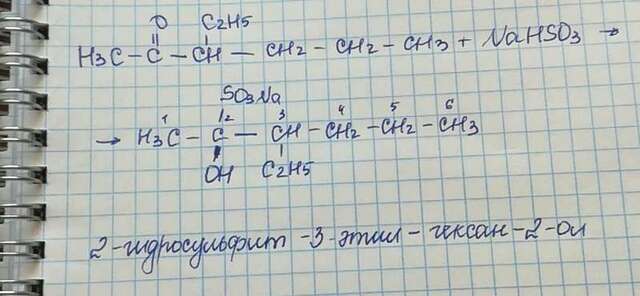 O C2H5
H3C - C - CH - CH2 - CH2 - CH3 + NaHSO3 →
SO3Na
1 2 3 4 5 6
→ H3C - C - CH - CH2 - CH2 - CH3
OH C2H5
2-гидросульфит-3-этил-гексан-2-ол